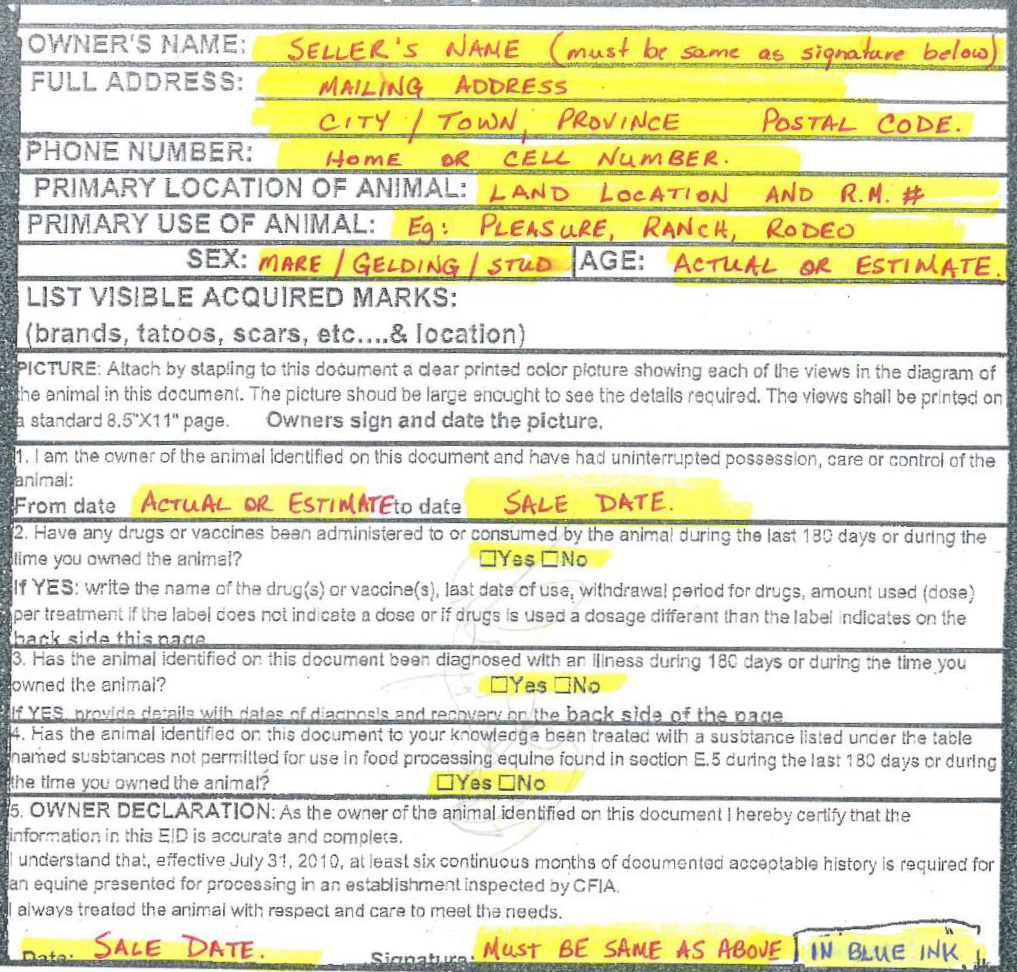 OWNER'S NAME: SELLER'S NAME (must be same as signature below)
FULL ADDRESS: MAILING ADDRESS
CITY / TOWN, PROVINCE POSTAL CODE.
PHONE NUMBER: HOME OR CELL NUMBER.
PRIMARY LOCATION OF ANIMAL: LAND LOCATION AND R.M. #
PRIMARY USE OF ANIMAL: Eg: PLEASURE, RANCH, RODEO
SEX: MARE / GELDING / STUD AGE: ACTUAL OR ESTIMATE.
LIST VISIBLE ACQUIRED MARKS:
(brands, tatoos, scars, etc....& location)
PICTURE: Attach by stapling to this document a clear printed color picture showing each of the views in the diagram of
the animal in this document. The picture shoud be large enought to see the details required. The views shall be printed on
a standard 8.5"X11" page. Owners sign and date the picture.
1. I am the owner of the animal identified on this document and have had uninterrupted possession, care or control of the
animal:
From date ACTUAL OR ESTIMATE to date SALE DATE.
2. Have any drugs or vaccines been administered to or consumed by the animal during the last 180 days or during the
time you owned the animal? ☐Yes ☐No
If YES: write the name of the drug(s) or vaccine(s), last date of use, withdrawal period for drugs, amount used (dose)
per treatment if the label does not indicate a dose or if drugs is used a dosage different than the label indicates on the
back side this page
3. Has the animal identified on this document been diagnosed with an illness during 180 days or during the time you
owned the animal? ☐Yes ☐No
If YES, provide details with dates of diagnosis and recovery on the back side of the page
4. Has the animal identified on this document to your knowledge been treated with a susbtance listed under the table
named susbtances not permitted for use in food processing equine found in section E.5 during the last 180 days or during
the time you owned the animal? ☐Yes ☐No
5. OWNER DECLARATION: As the owner of the animal identified on this document I hereby certify that the
information in this EID is accurate and complete.
I understand that, effective July 31, 2010, at least six continuous months of documented acceptable history is required for
an equine presented for processing in an establishment inspected by CFIA.
I always treated the animal with respect and care to meet the needs.
Date: SALE DATE. Signature: MUST BE SAME AS ABOVE IN BLUE INK